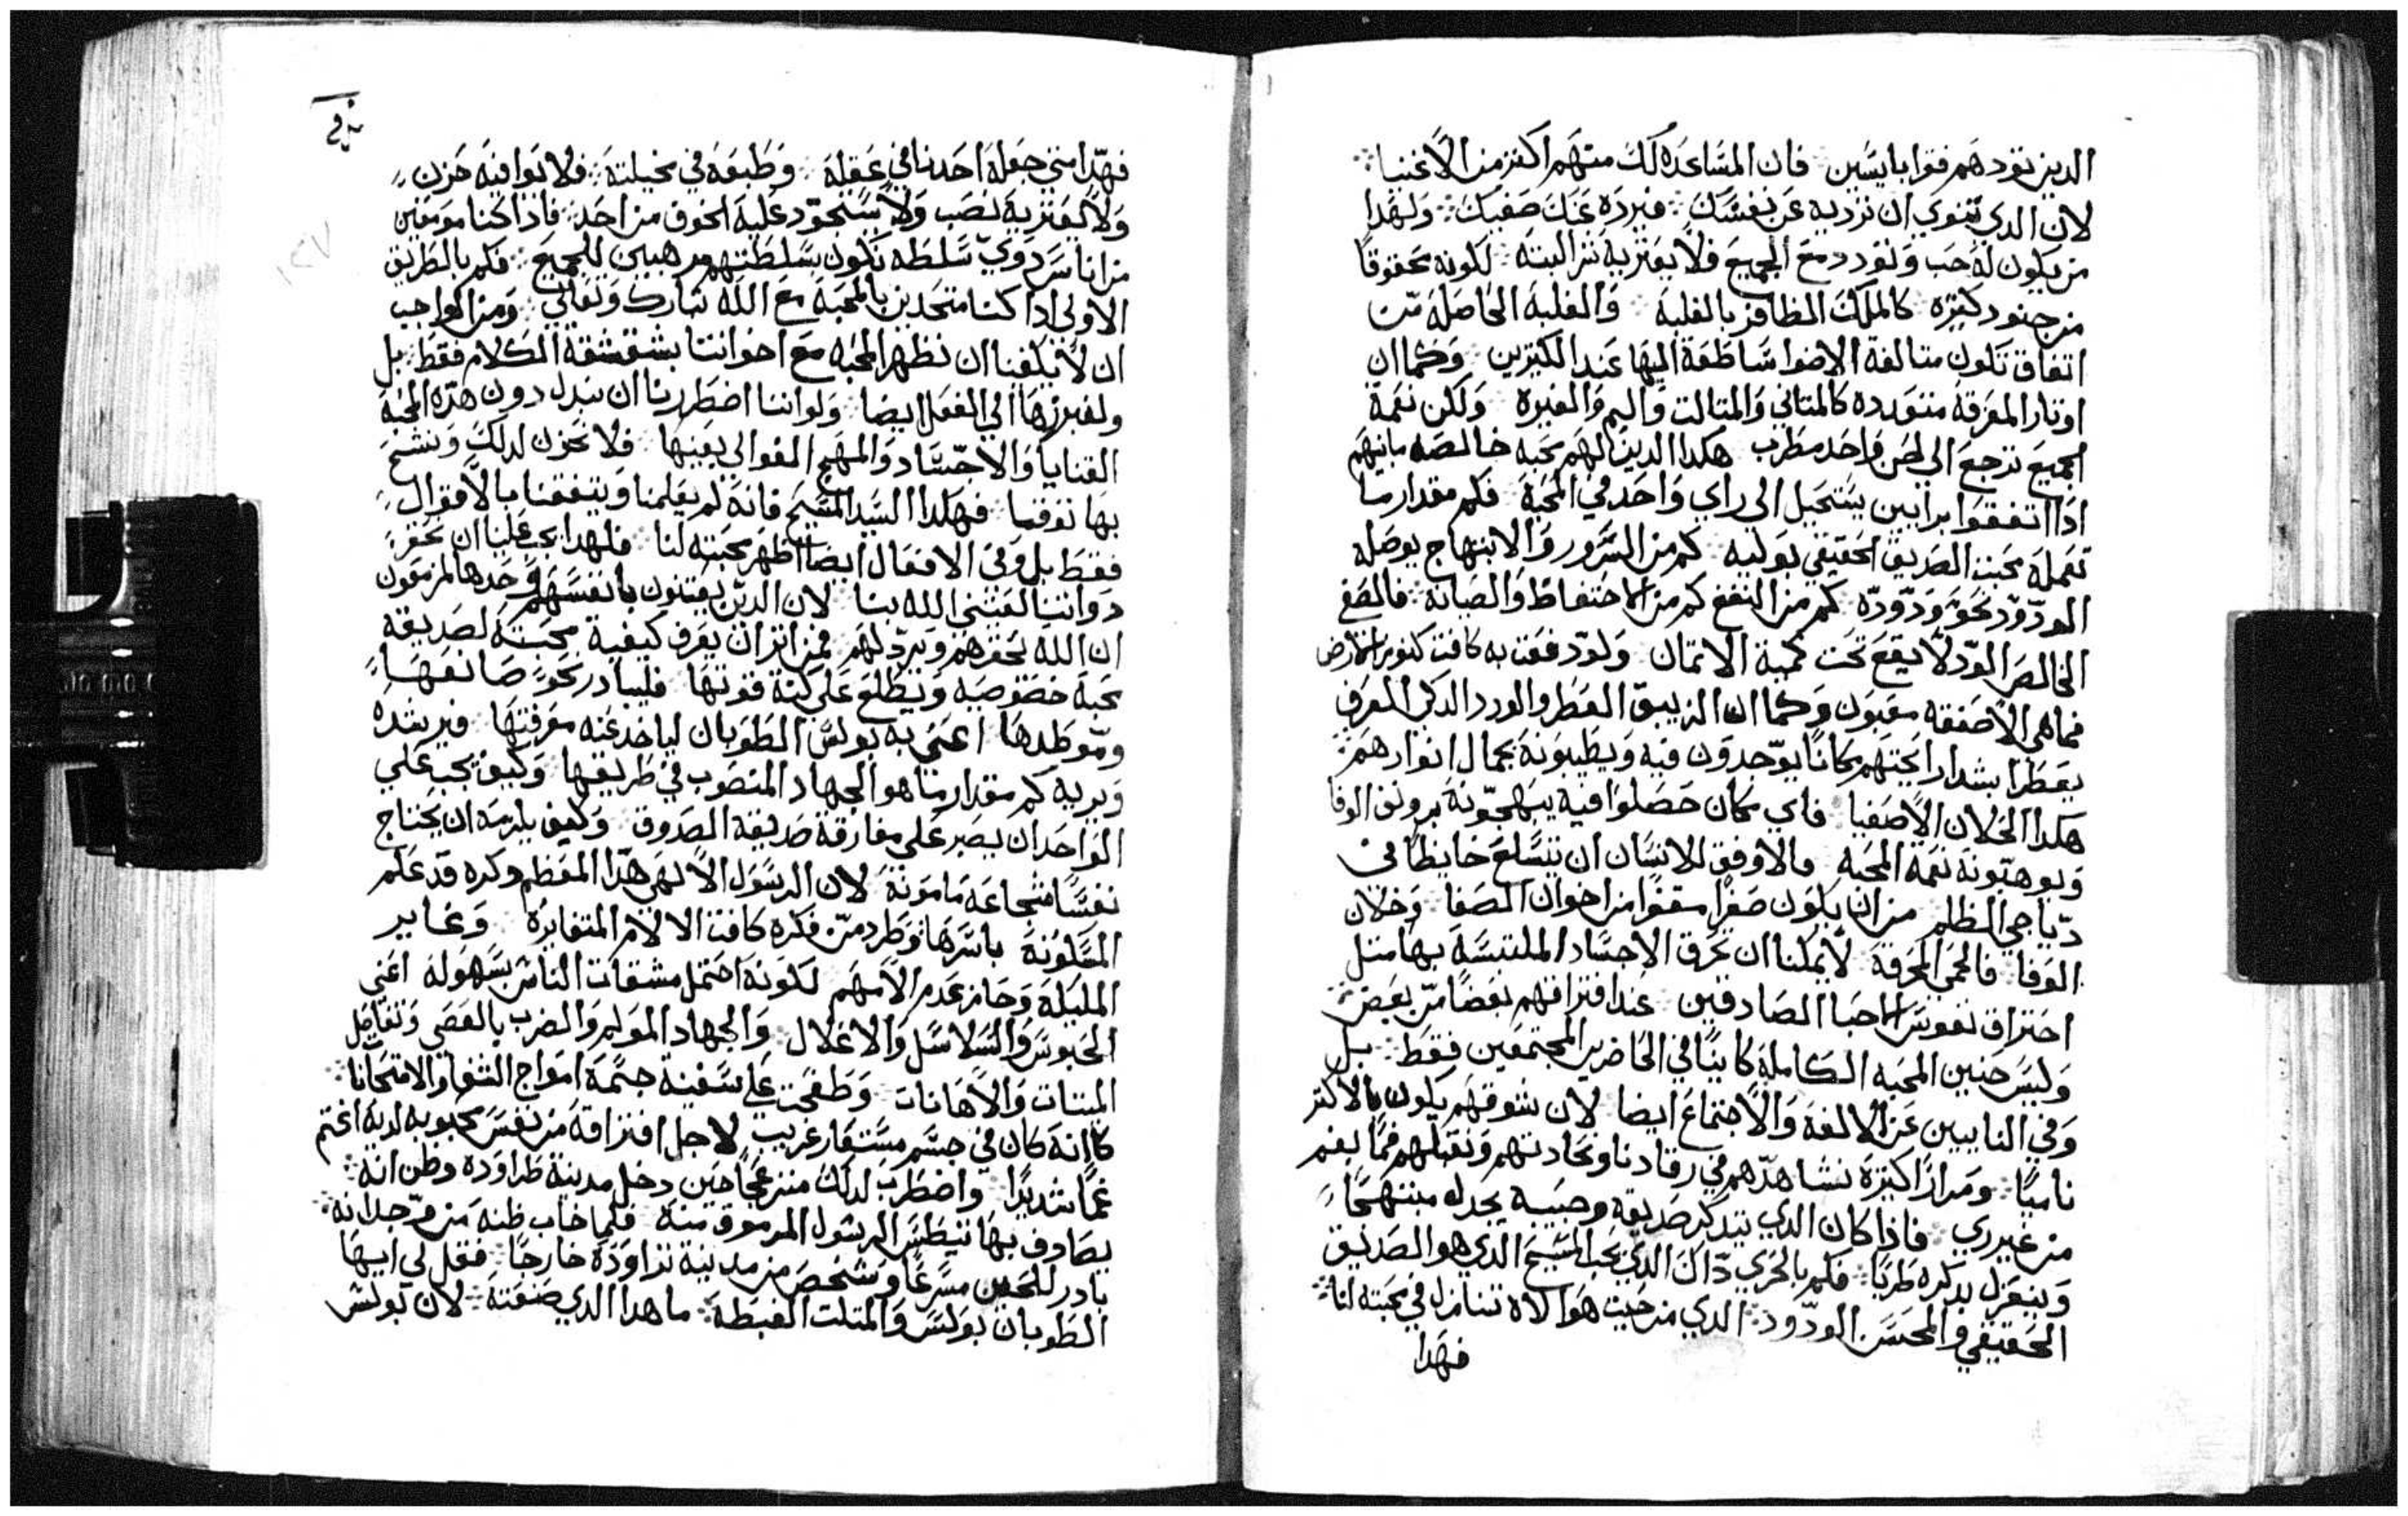 الدين تودهم فقوا بايسين فان المساعده لك منهم اكتر من الاغنيا
لان الدي تنوي ان تزديه عن نفسك فيرده عنك صفيك ولهدا
من يكون له حب وتودد مع الجميع فلا يعتريه شر البته لكونه محقوقا
من جنود كتيره كالملك الظافر بالغلبة والغلبة الحاصلة من
اتفاق تكون متالفة الاضوا ساطعة اليها عند الكتيرين وكما ان
اوتار المعزفه متعدده كالمتاني والمتالت واليم والغيره ولكن نغمة
الجميع ترجع الي لحن واحد مطرب هكدا الدين لهم محبه خالصه مابينهم
ادا اتفقوا برايين يستحيل الي راي واحد في المحبة فكم مقدار ما
تعمله محبت الصديق الحقيقي بوليه كم من السرور والابتهاج يوصله
الودود نحو ودوده كم من النفع كم من الاحتفاظ والصيانه فالصفي
الخالص الود لا يقع تحت كمية الاتمان ولو دفعت به كافت كنوز الارض
فما هي الا صفقه مغبون وكما ان الزيبق العطر والورد الدكي العرف
يعطرا بشدا رايحتهم مكانا يوحدون فيه ويطيبونه بجمال انوارهم
هكدا الخلان الاصفيا فاي مكان حصلوا فيه يبهجونه برونق الوفا
ويوهبونه نغمة المحبه والاوفق للانسان ان يتسلع خايطا في
دياجي الظلم من ان يكون صفرا سقفا من اخوان الصفا وخلان
الوفا فالحمي المحرقة لا يمكنا ان تحرق الاجساد الملتبسة بها متل
احتراق نفوس الاحبا الصادقين عند افتراقهم بعضا من بعض
وليس حنين المحبه الكاملة كاينا في الحاضرين المجتمعين فقط بل
وفي النايبين عن الالفه والاجتماع ايضا لان شوقهم يكون بالاكتر
ناميا ومرارا كتيرة نشاهدهم في رقادنا ونحادتهم ونقبلهم فما بغم
من غير ري فادا كان الدي يتدكر صديقه وحبيبه يجدله مبتهجا
ويتغزل بدكره طربا فكم بالحري داك الدي يحب المسيح الدي هو الصديق
الحقيقي والمحسن الودود الدي من حيت هو الاه تنازل في محبته لنا
فهدا
فهدا متي جعله احدنا في عقله وطبعه في مخيلته فلا توافيه حزن
ولا يعتريه نصب ولا يستحود عليه الخوف من احد فادا كنا مومنين
من اناس دوي سلطه تكون سلطتهم مرهبين للجميع فكم بالطريق
الاولي ادا كنا متحدين بالمحبة مع الله تبارك وتعالي ومن الواجب
ان لا يكفينا ان نظهر المحبه مع اخواننا بشقشقة الكلام فقط بل
ولنبرزها الي الفعل ايضا ولو اننا اضطررنا ان نبدل دون هده المحبه
القنايا والاجساد والمهج الغوالي بعينها فلا نحزن لدلك ونشح
بها توقنا فهكدا السيد المسيح فانه لم يعلمنا ويتفقنا بالاقوال
فقط بل وفي الافعال ايضا اظهر محبته لنا فلهدا يجب علينا ان نحقر
دواتنا لفتني الله بنا لان الدين يعتنون بانفسهم وحدها المزمعون
ان الله يحقرهم ويردلهم فمن اتر ان يعرف كيفية محبته لصديقه
محبة خصوصيه ويطلع علي كنه قوتها فليبادر نحو صانعها
وموطدها اعني به بولس الطوبان لياخد عنه معرفتها فيرشده
ويريه كم مقدار ما هو الجهاد المنصوب في طريقها وكيف يجب علي
الواحد ان يصبر علي مفارقة صديقه الصدوق وكيف يلزمه ان يحتاج
نفسا شجاعه مامونة لان الرسول الالهي هدا المعظم دكره قد علم
المسكونة باسرها وطرد من فكره كافت الالام المتغايره وغاير
المليلة وجاز عدم الامهم لكونه احتمل مشقات الناس بسهوله اعني
الحبوس والسلاسل والاغلال والجهاد المولم والضرب بالعصي وتفاصل
الميتات والاهانات وطفحت علي سفينة جسمه امواج الشغاو الامتحانا
كانه كان في جسم مستعار غريب لاجل افتراقه من نفس محبوبه لديه اغتم
غما شديدا واضطرب لدلك منزعجا حين دخل مدينة طراوده وظن انه
يصادف بها تيطس الرسول المرموق منه فلما خاب ظنه من وجدانه
بادر للحين مسرعا وشخص من مدينة تراوده خارجا فقل لي ايها
الطوبان بولس والمتلت الغبطة ما هدا الدي صنعته لان بولس